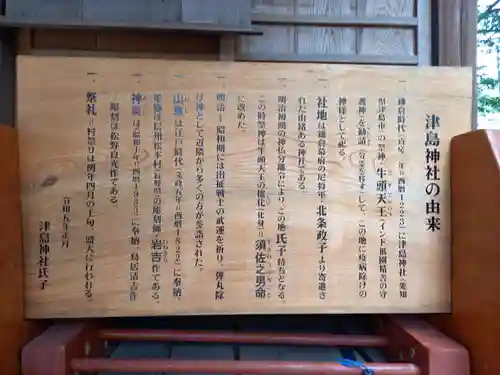 津島神社の由来
一 鎌倉時代(貞応二年=西暦1223)に津島神社(愛知
県津島市)の祭神・牛頭天王(インド祇園精舎の守
護神)を勧請(分霊を移す)して、この地に疫病除けの
神様として祀る。
一 社地は鎌倉幕府の尼将軍・北条政子より寄進さ
れた由緒ある神社である。
一 明治初期の神仏分離令により、この地氏子持ちとなる。
この時祭神は牛頭天王の権化(化身)の須佐之男命
に改めた。
一 明治~昭和期には出征戦士の武運を祈り、弾丸除
け神として近隣から多くの方が参詣された。
一 山車は江戸時代(文政五年=西暦1822)に奉納。
彫物は信州松本村(長野県)の彫刻師・岩吉作である。
一 神輿は昭和
年(西暦198
)に奉納。鳥居清吉作
彫刻は松野良光作である。
一 祭礼=村祭りは例年四月の上旬、盛大に行われる。
令和五年正月
津島神社氏子